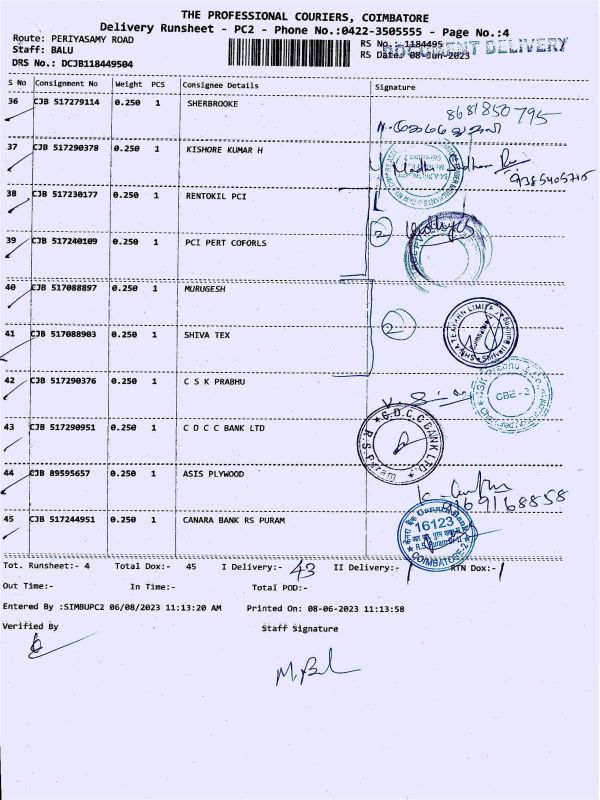 THE PROFESSIONAL COURIERS, COIMBATORE
Delivery Runsheet - PC2 - Phone No.:0422-3505555 - Page No.:4
Route: PERIYASAMY ROAD
RS No.:-1184495
DOCUMENT DELIVERY
Staff: BALU
RS Date: 08-Jun-2023
DRS No.: DCJB118449504
S No Consignment No Weight PCS Consignee Details Signature
36 CJB 517279114 0.250 1 SHERBROOKE
8681850795
37 CJB 517290378 0.250 1 KISHORE KUMAR H
9385405715
38 CJB 517230177 0.250 1 RENTOKIL PCI
39 CJB 517240109 0.250 1 PCI PERT COFORLS
2
40 CJB 517088897 0.250 1 MURUGESH
41 CJB 517088903 0.250 1 SHIVA TEX
2
42 CJB 517290376 0.250 1 C S K PRABHU
CBE - 2
43 CJB 517290951 0.250 1 C D C C BANK LTD
C.D.C.C BANK LTD.
R.S. Puram
44 CJB 89595657 0.250 1 ASIS PLYWOOD
45 CJB 517244951 0.250 1 CANARA BANK RS PURAM
Canara Bank
16123
COIMBATORE-2
Tot. Runsheet:- 4 Total Dox:- 45 I Delivery:- 43 II Delivery:- 1 RTN Dox:- 1
Out Time:- In Time:- Total POD:-
Entered By :SIMBUPC2 06/08/2023 11:13:20 AM Printed On: 08-06-2023 11:13:58
Verified By Staff Signature